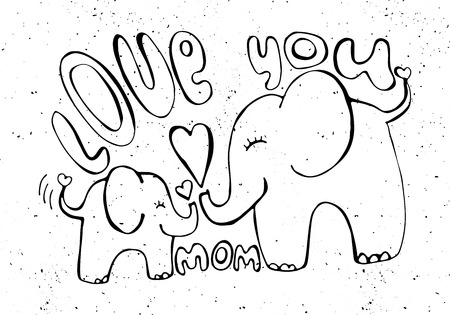 LOVE YOU
MOM